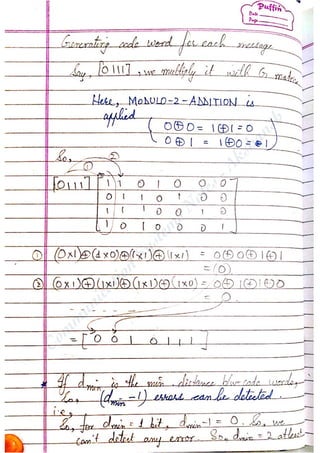 Puffin
Date
Page
Generating code word for each message
Say, [0111], we multiply it with G matrix
Here, MODULO-2-ADDITION is
applied
0⊕0 = 1⊕1 = 0
0⊕1 = 1⊕0 = 1
So,
① ②
[0111] [1 1 0 1 0 0 0
0 1 1 0 1 0 0
1 1 1 0 0 1 0
1 0 1 0 0 0 1]
① (0×1)⊕(1×0)⊕(1×1)⊕(1×1) = 0⊕0⊕1⊕1
= (0)
② (0×1)⊕(1×1)⊕(1×1)⊕(1×0) = 0⊕1⊕1⊕0
= 0
= [0 0 1 0 1 1 1]
* If dmin is the min. distance b/w code words,
So, (dmin -1) errors can be detected.
i.e,
So, for dmin = 1 bit, dmin -1 = 0. So, we
can't detect any error. So dmin = 2 atleast